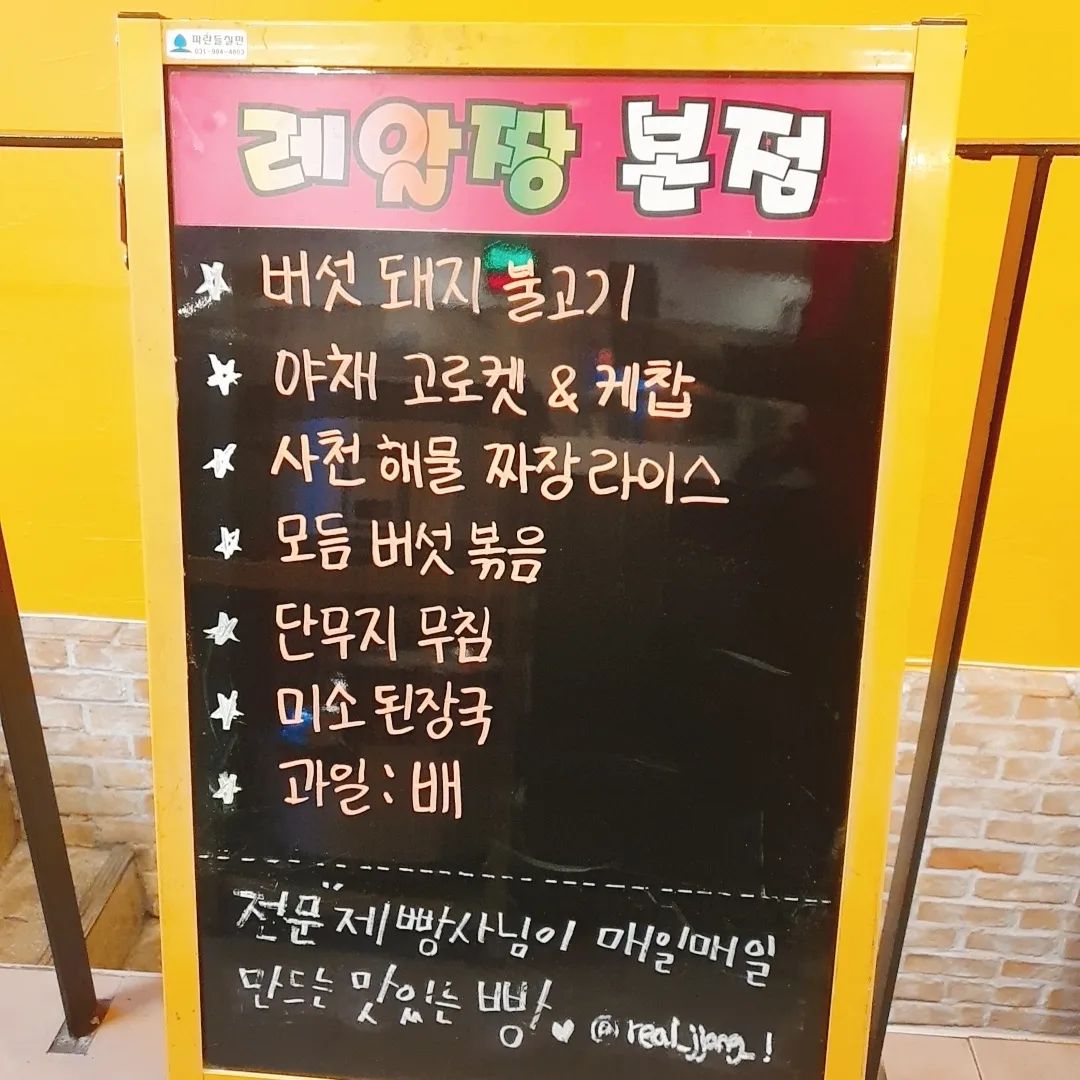 파란들실면
031-904-4803
레알짱 본점
버섯 돼지 불고기
야채 고로켓 & 케찹
사천 해물 짜장라이스
모듬 버섯 볶음
단무지 무침
미소 된장국
과일 : 배
전문 제빵사님이 매일매일
만드는 맛있는 빵 ♥ @real_jjang_!